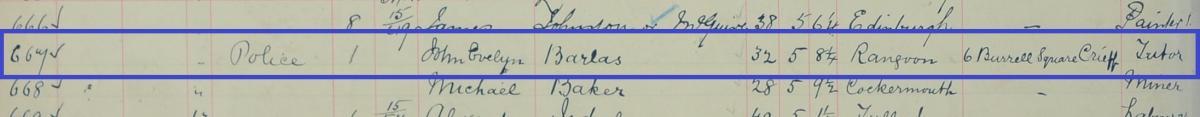 666 8 15/ James Johnston or McGuire 38 5 6¼ Edinburgh — Painter
667 " Police 1 John Evelyn Barlas 32 5 8¼ Rangoon 6 Burrell Square Crieff Tutor
668 " Michael Baker 28 5 9½ Cockermouth — Miner
15/